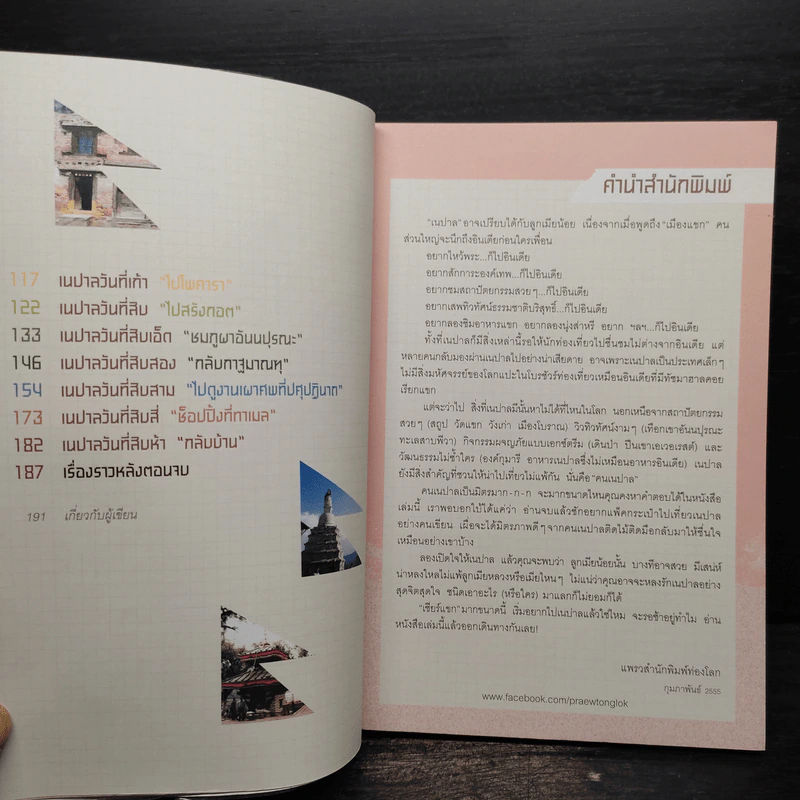 117 เนปาลวันที่เก้า "ไปโพคารา"
122 เนปาลวันที่สิบ "ไปสรังกอต"
133 เนปาลวันที่สิบเอ็ด "ชมภูผาอันนปุรณะ"
146 เนปาลวันที่สิบสอง "กลับกาฐมาณฑุ"
154 เนปาลวันที่สิบสาม "ไปดูงานเผาศพที่ปศุปฏินาถ"
173 เนปาลวันที่สิบสี่ "ช็อปปิ้งที่ทาเมล"
182 เนปาลวันที่สิบห้า "กลับบ้าน"
187 เรื่องราวหลังตอนจบ
191 เกี่ยวกับผู้เขียน
คำนำสำนักพิมพ์
"เนปาล" อาจเปรียบได้กับลูกเมียน้อย เนื่องจากเมื่อพูดถึง "เมืองแขก" คน
ส่วนใหญ่จะนึกถึงอินเดียก่อนใครเพื่อน
อยากไหว้พระ...ก็ไปอินเดีย
อยากสักการะองค์เทพ...ก็ไปอินเดีย
อยากชมสถาปัตยกรรมสวยๆ...ก็ไปอินเดีย
อยากเสพทิวทัศน์ธรรมชาติบริสุทธิ์...ก็ไปอินเดีย
อยากลองชิมอาหารแขก อยากลองนุ่งส่าหรี อยาก ฯลฯ...ก็ไปอินเดีย
ทั้งที่เนปาลก็มีสิ่งเหล่านี้รอให้นักท่องเที่ยวไปชื่นชมไม่ต่างจากอินเดีย แต่
หลายคนกลับมองผ่านเนปาลไปอย่างน่าเสียดาย อาจเพราะเนปาลเป็นประเทศเล็กๆ
ไม่มีสิ่งมหัศจรรย์ของโลกแปะในโบรชัวร์ท่องเที่ยวเหมือนอินเดียที่มีทัชมาฮาลคอย
เรียกแขก
แต่จะว่าไป สิ่งที่เนปาลมีนั้นหาไม่ได้ที่ไหนในโลก นอกเหนือจากสถาปัตยกรรม
สวยๆ (สถูป วัดแขก วังเก่า เมืองโบราณ) วิวทิวทัศน์งามๆ (เทือกเขาอันนปุรณะ
ทะเลสาบพีวา) กิจกรรมผจญภัยแบบเอกซ์ตรีม (เดินป่า ปีนเขาเอเวอเรสต์) และ
วัฒนธรรมไม่ซ้ำใคร (องค์กุมารี อาหารเนปาลซึ่งไม่เหมือนอาหารอินเดีย) เนปาล
ยังมีสิ่งสำคัญที่ชวนให้น่าไปเที่ยวไม่แพ้กัน นั่นคือ "คนเนปาล"
คนเนปาลเป็นมิตรมาก-ก-ก จะมากขนาดไหนคุณคงหาคำตอบได้ในหนังสือ
เล่มนี้ เราพอบอกใบ้ได้แค่ว่า อ่านจบแล้วชักอยากแพ็คกระเป๋าไปเที่ยวเนปาล
อย่างคนเขียน เผื่อจะได้มิตรภาพดีๆ จากคนเนปาลติดไม้ติดมือกลับมาให้ชื่นใจ
เหมือนอย่างเขาบ้าง
ลองเปิดใจให้เนปาล แล้วคุณจะพบว่า ลูกเมียน้อยนั้น บางทีอาจสวย มีเสน่ห์
น่าหลงใหลไม่แพ้ลูกเมียหลวงหรือเมียไหนๆ ไม่แน่ว่าคุณอาจจะหลงรักเนปาลอย่าง
สุดจิตสุดใจ ชนิดเอาอะไร (หรือใคร) มาแลกก็ไม่ยอมก็ได้
"เชียร์แขก" มากขนาดนี้ เริ่มอยากไปเนปาลแล้วใช่ไหม จะรอช้าอยู่ทำไม อ่าน
หนังสือเล่มนี้แล้วออกเดินทางกันเลย!
แพรวสำนักพิมพ์ท่องโลก
กุมภาพันธ์ 2555
www.facebook.com/praewtonglok